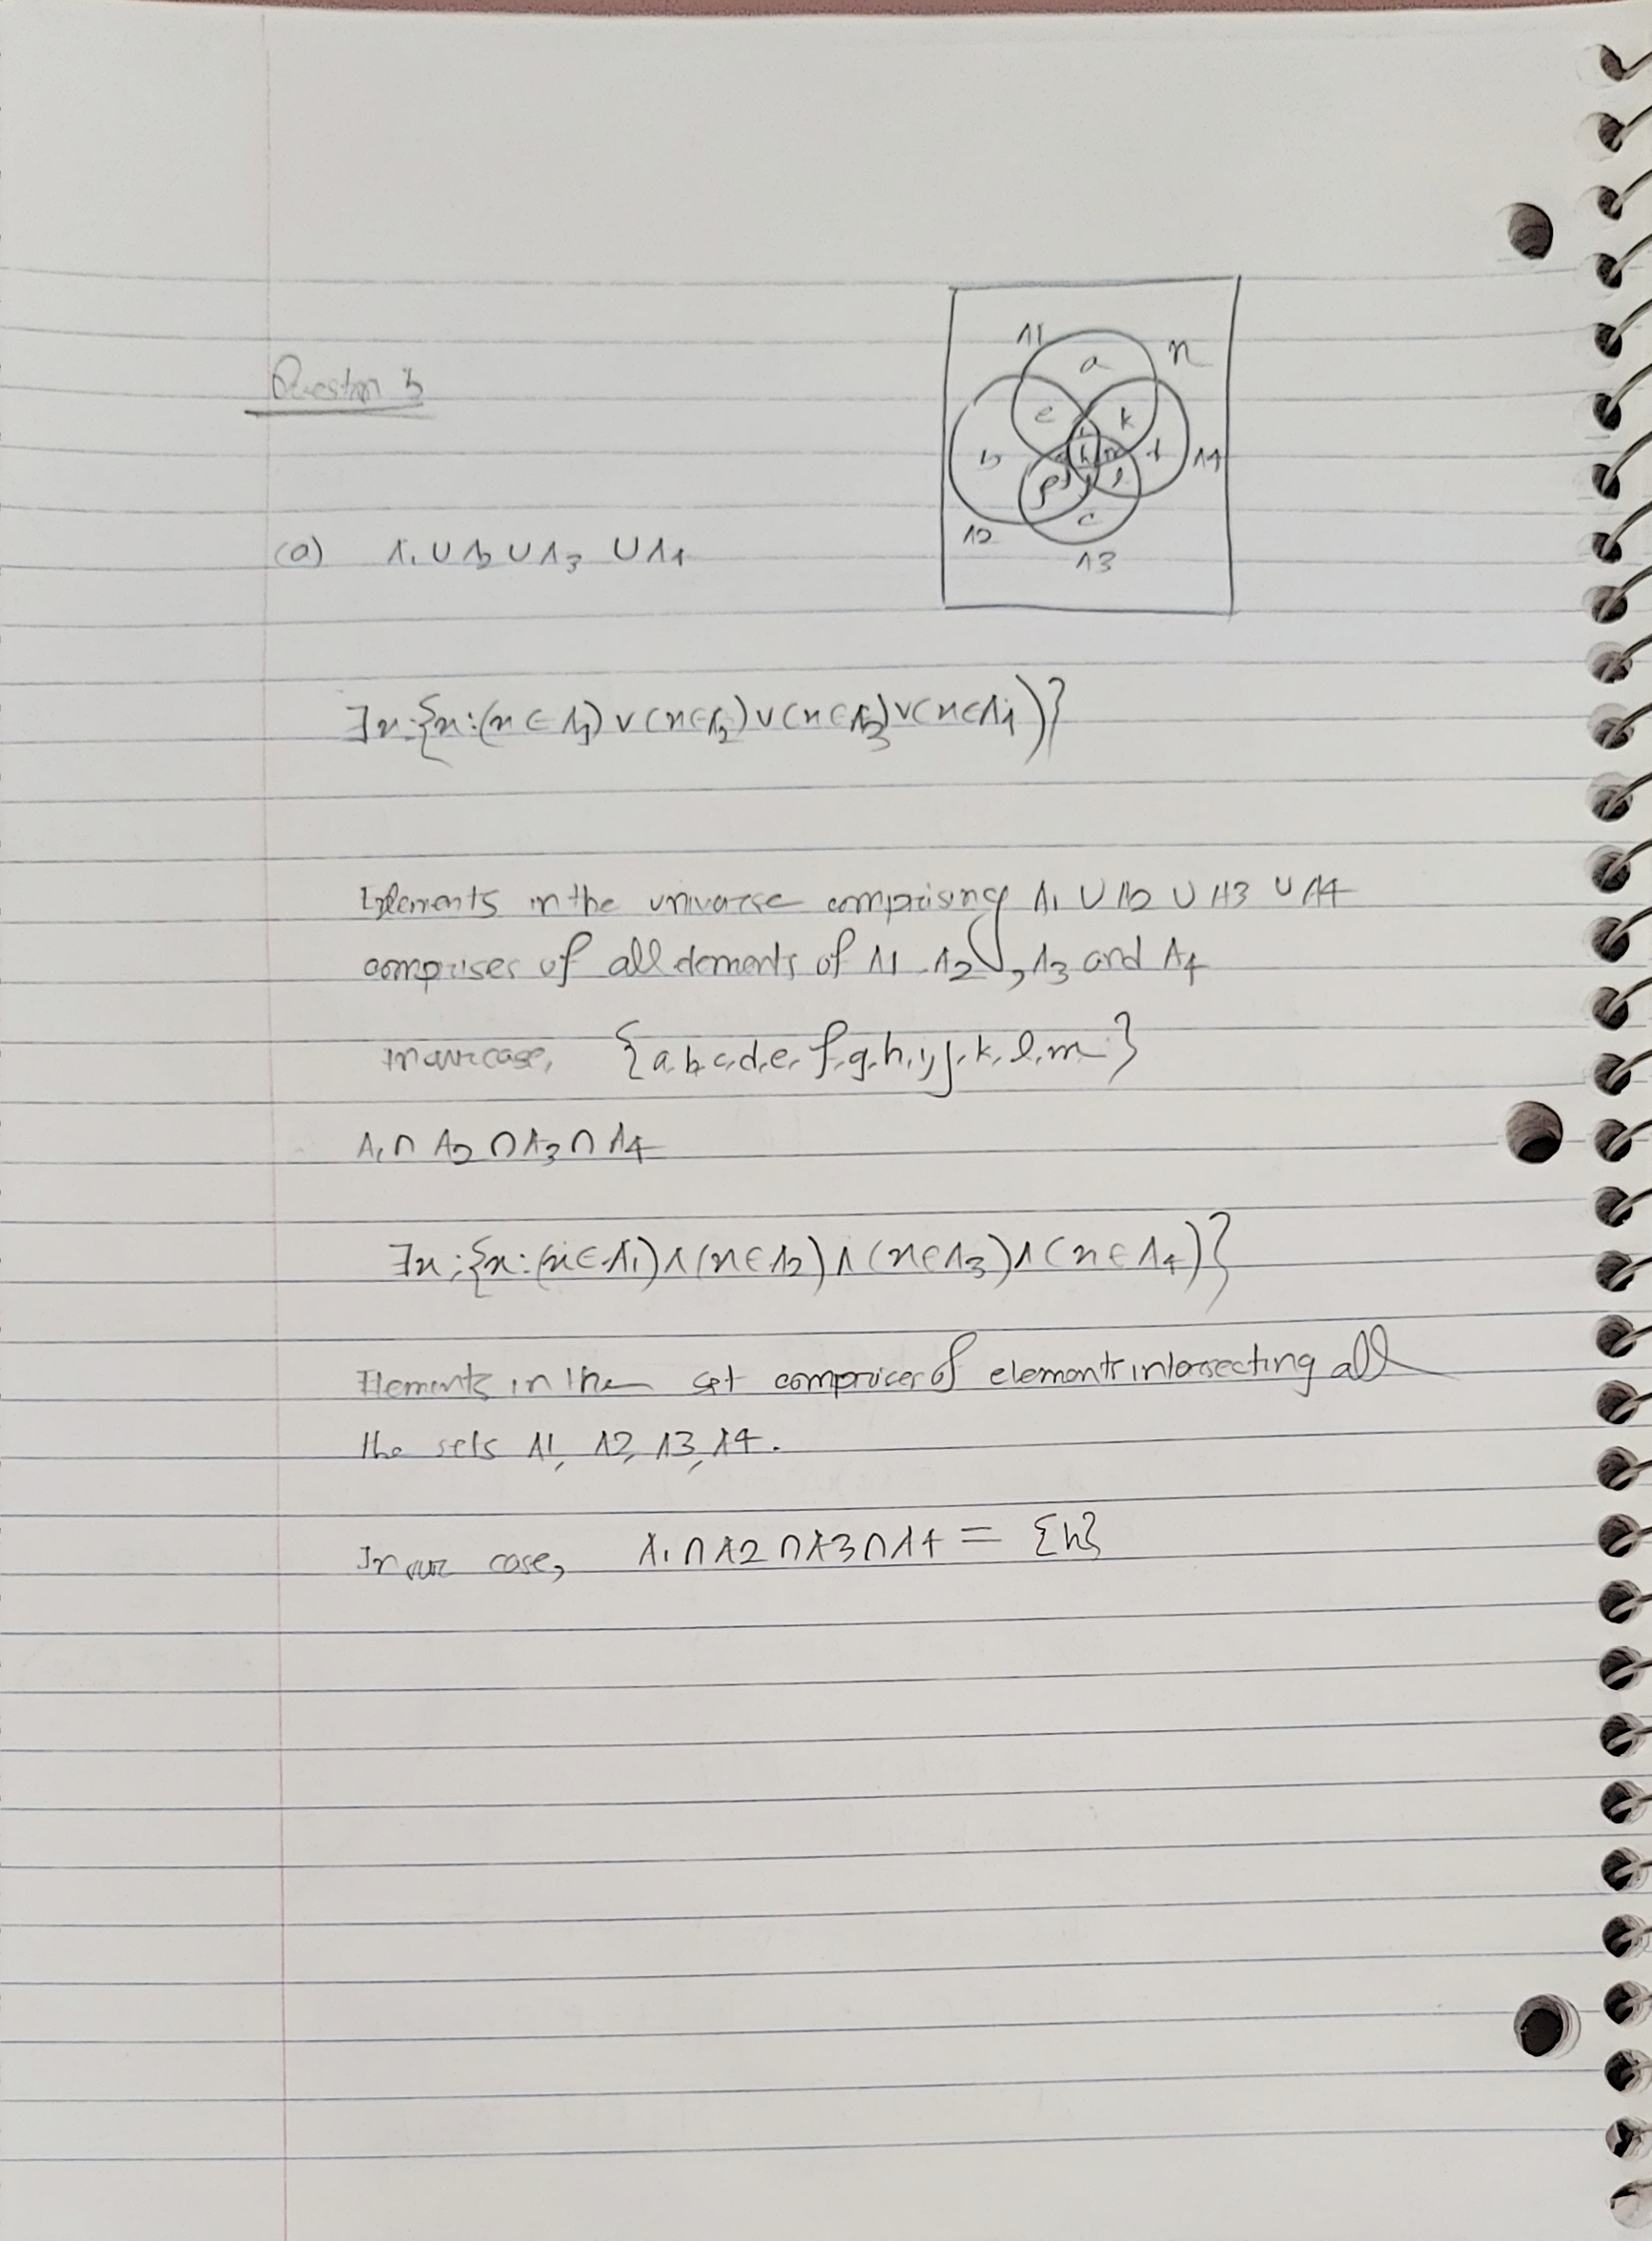 A1
n
a
e
k
b
h
A4
f
l
c
A2
A3
Question 3
(a) A1 ∪ A2 ∪ A3 ∪ A4
∃x:{x:(x ∈ A1) ∨ (x ∈ A2) ∨ (x ∈ A3) ∨ (x ∈ A4)}
Elements in the universe comprising A1 ∪ A2 ∪ A3 ∪ A4
comprises of all elements of A1, A2, A3 and A4
In our case, {a,b,c,d,e,f,g,h,i,j,k,l,m}
A1 ∩ A2 ∩ A3 ∩ A4
∃x:{x:(x ∈ A1) ∧ (x ∈ A2) ∧ (x ∈ A3) ∧ (x ∈ A4)}
Elements in the set comprises of elements intersecting all
the sets A1, A2, A3, A4.
In our case, A1 ∩ A2 ∩ A3 ∩ A4 = {h}